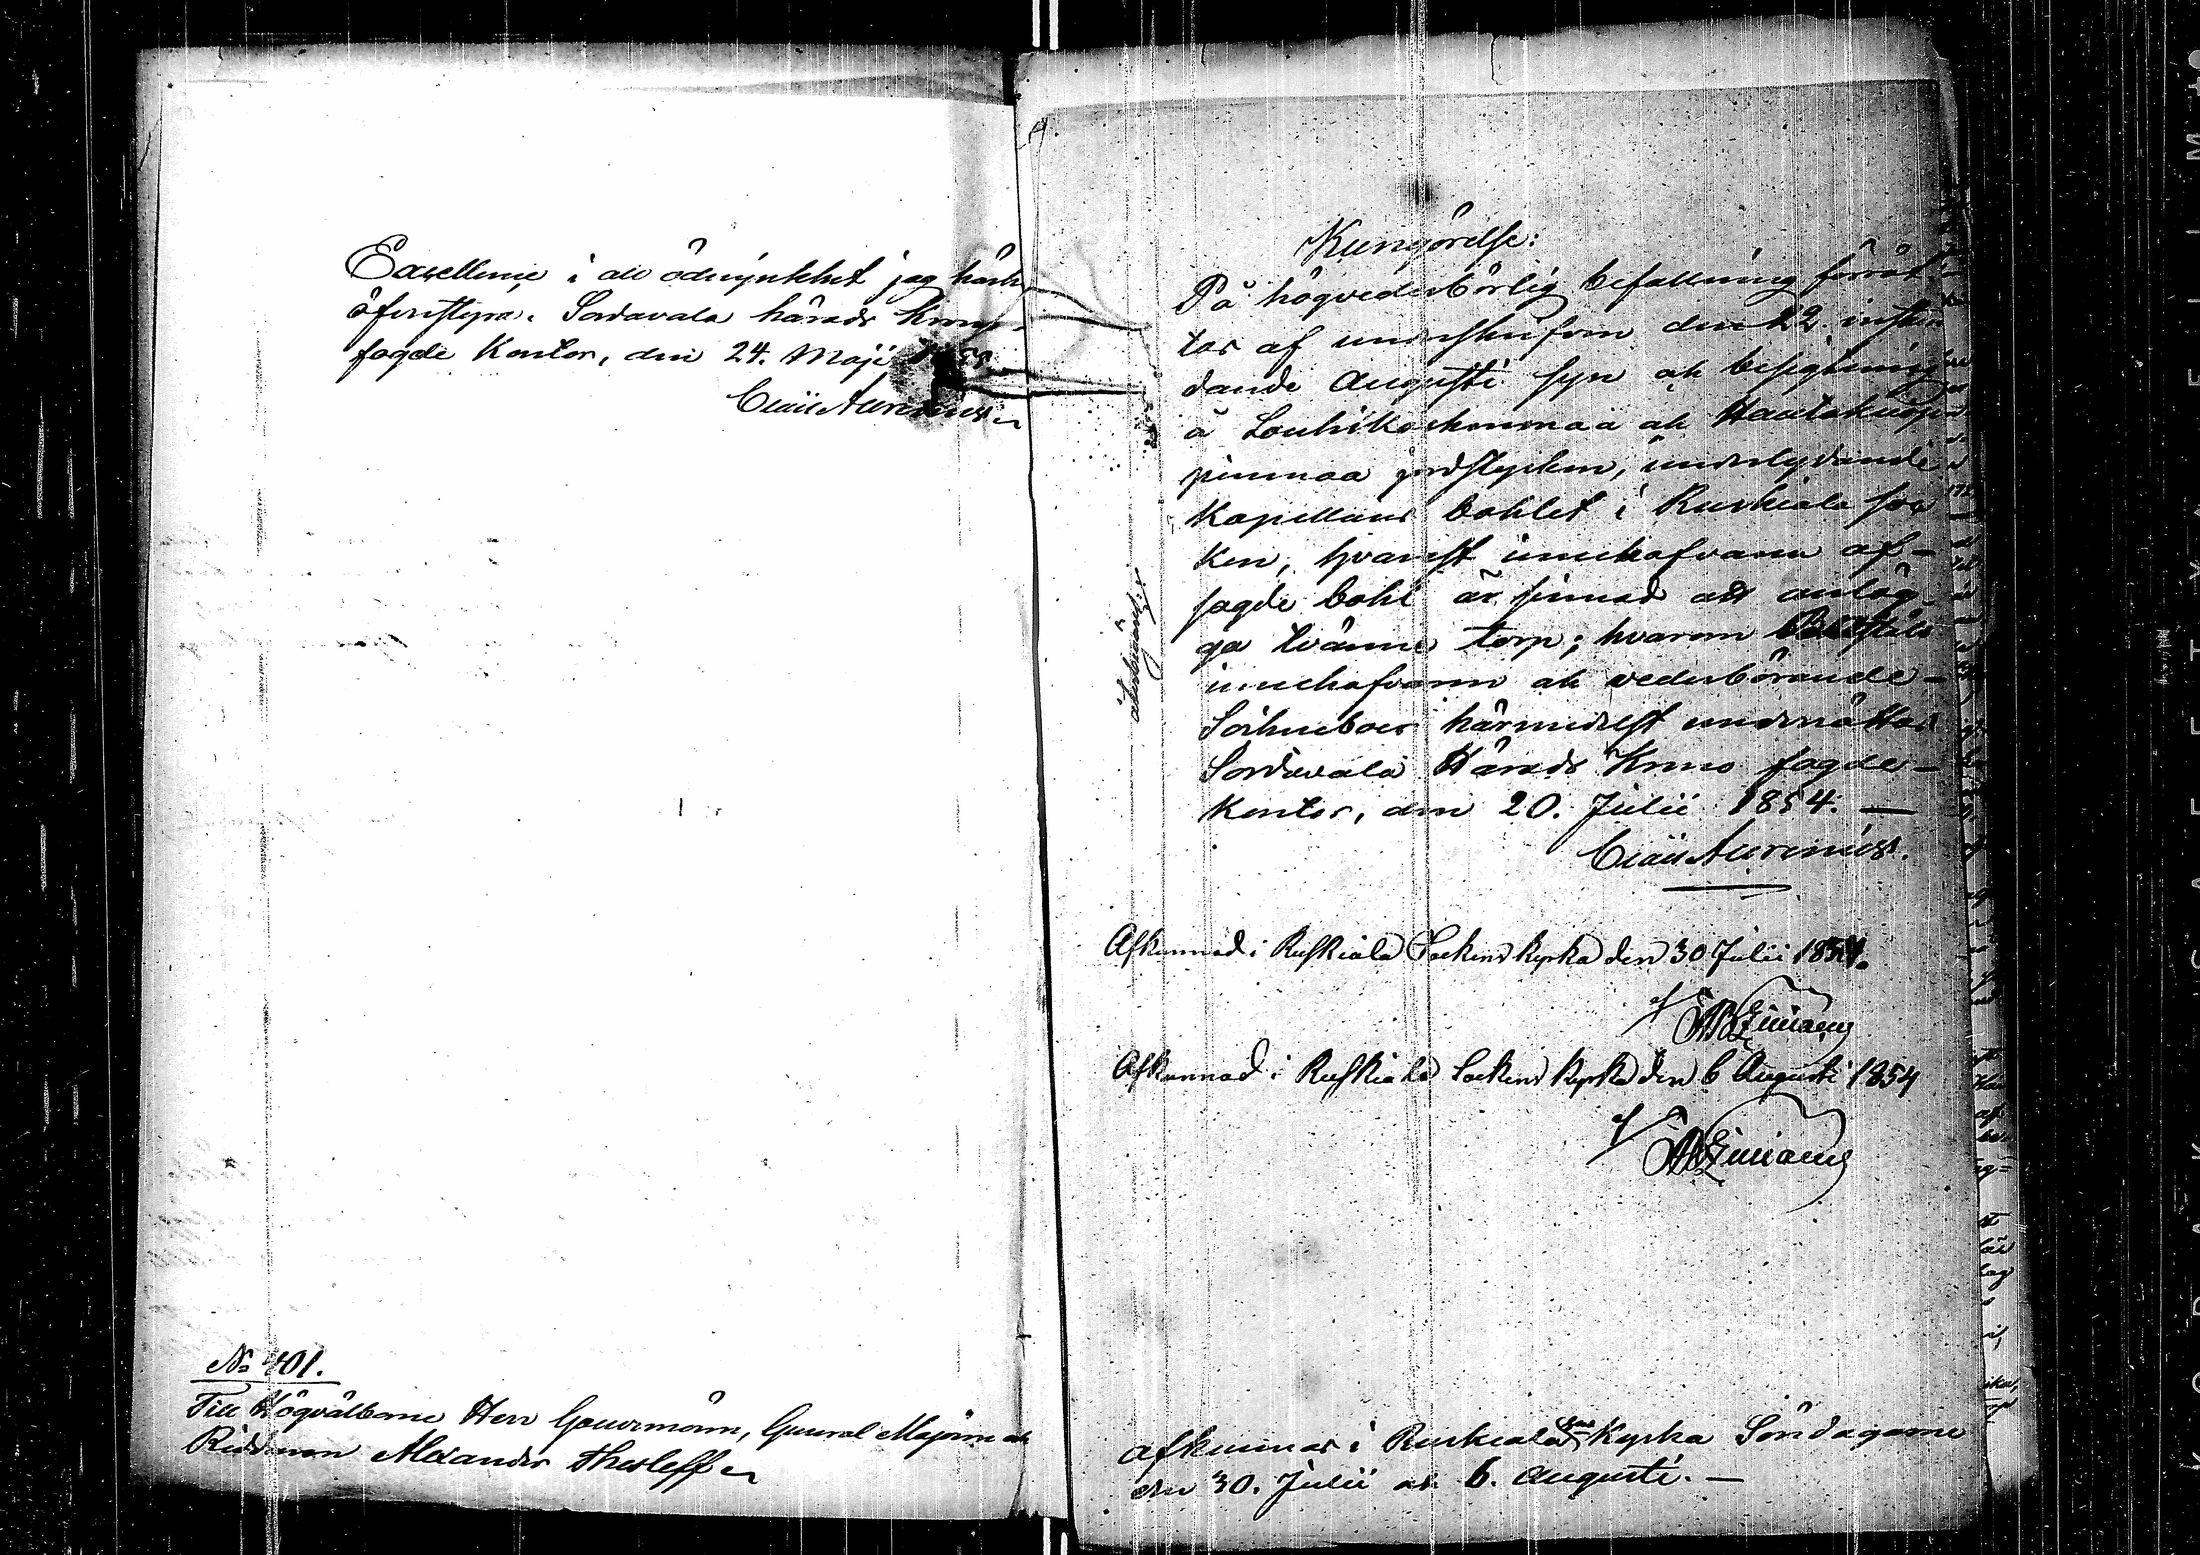 Excellence i all ödmjukhet jag härh.
öfverstyra. Sordavala härads Krono-
fogde Kontor, den 24. Maji
Claës Aurenius
No 401.
Till Högvälborne Herr Gouvernören, General Majoren och
Riddaren Alexander Thesleff
Kungörelse:
På högvederbörlig befallning förrät-
tas af undertecknad den 22. instun-
dande Augusti syn och besigtning
å Louhikorkonmaa och
pinmaa jordstycken, underlydande
Kapellans bohlet i Ruskiala soc-
ken, hvarest innehafvaren af-
sagde bohl är sinnad att anläg-
ga tvänne torp; hvarom Boställs
innehafvaren och vederbörande
Sockneboer härmedelst underrättas
Sordavala Härads Krono fogde-
kontor, den 20. Julii 1854. —
Claës Aurenius.
återbegäres.
Afkunnad i Ruskiala Sockens kyrka den 30 Julii 1854.
Afkunnad i Ruskiala Sockens kyrka den 6 Augusti 1854
afkunnas i Ruskiala Kyrka Söndagarne
den 30. Julii och 6. Augusti. —